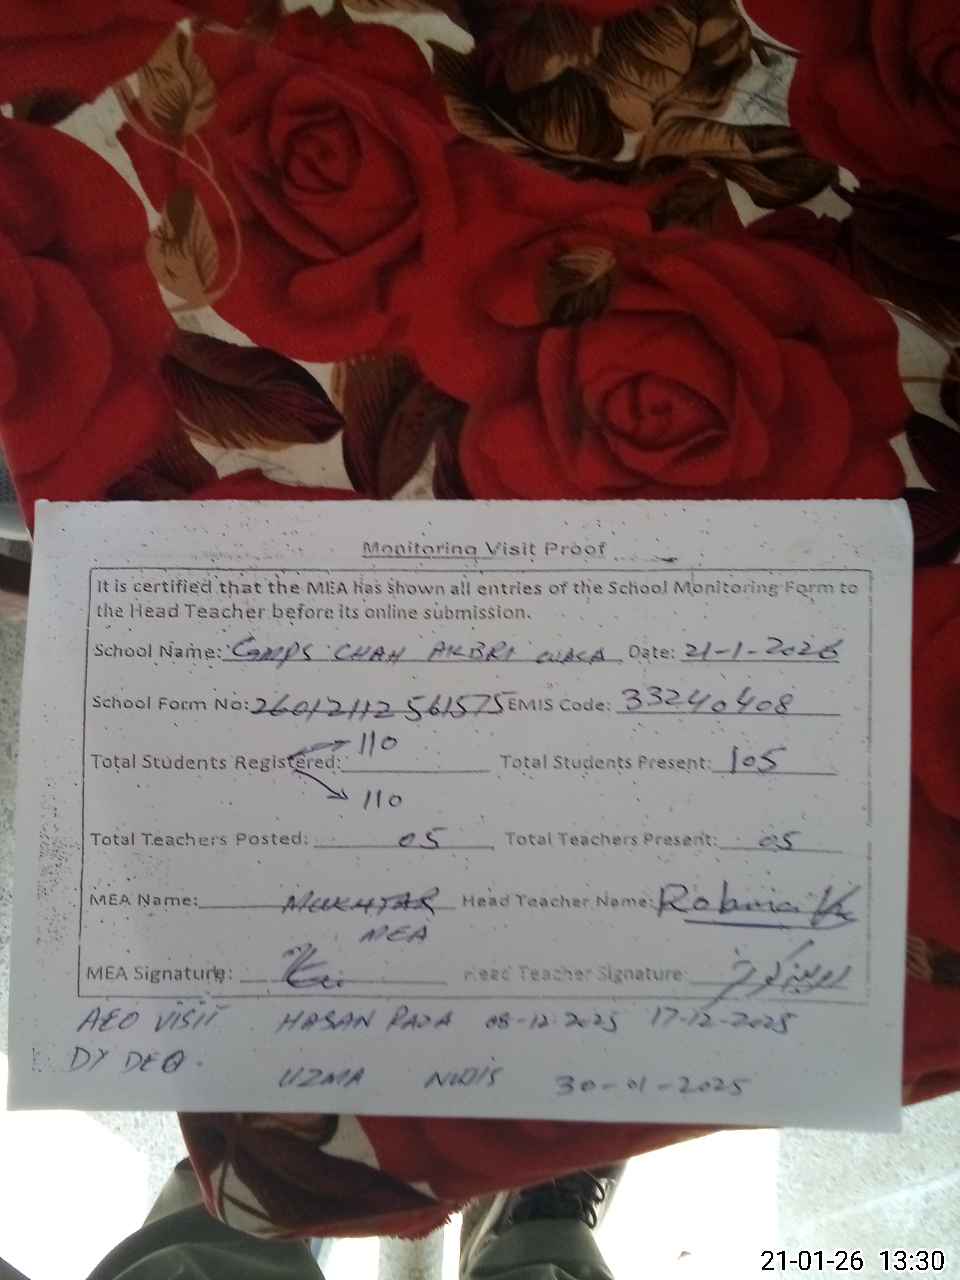 Monitoring Visit Proof
It is certified that the MEA has shown all entries of the School Monitoring Form to
the Head Teacher before its online submission.
School Name: GMPS CHAH AKBRI WALA Date: 21-1-2026
School Form No: 26012112561575 EMIS Code: 33240408
110
Total Students Registered: Total Students Present: 105
110
Total Teachers Posted: 05 Total Teachers Present: 05
MEA Name: MUKHTAR Head Teacher Name: Robina
MEA
MEA Signature: Head Teacher Signature:
AEO VISIT HASAN RAZA 08-12-2025 17-12-2025
DY DEO.
UZMA 30-01-2025
21-01-26 13:30